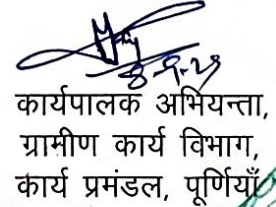 कार्यपालक अभियन्ता,
ग्रामीण कार्य विभाग,
कार्य प्रमंडल, पूर्णियाँ